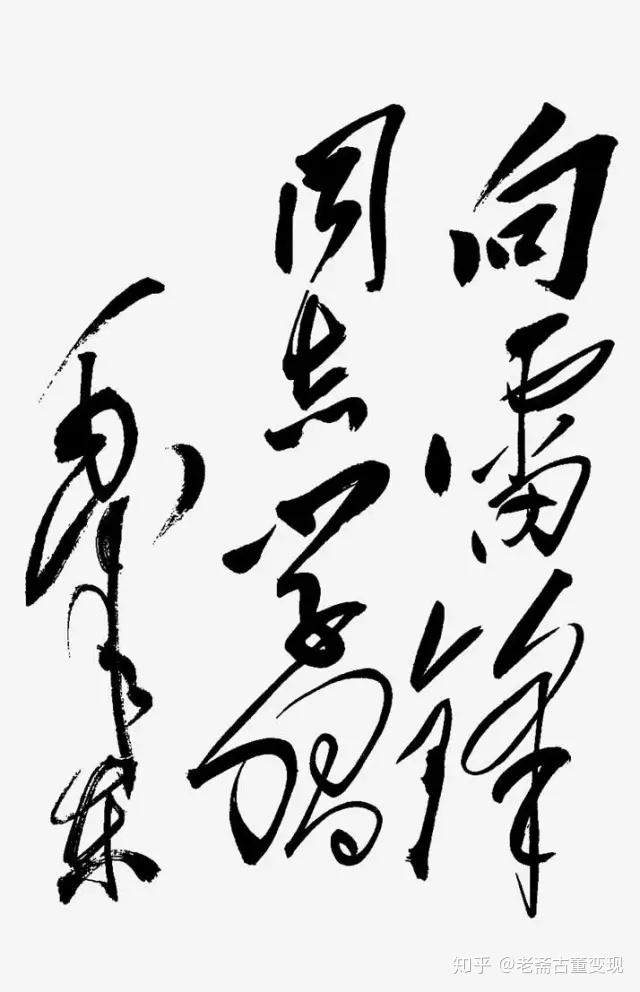 向雷锋
同志学习
毛泽东
知乎 @老斋古董变现